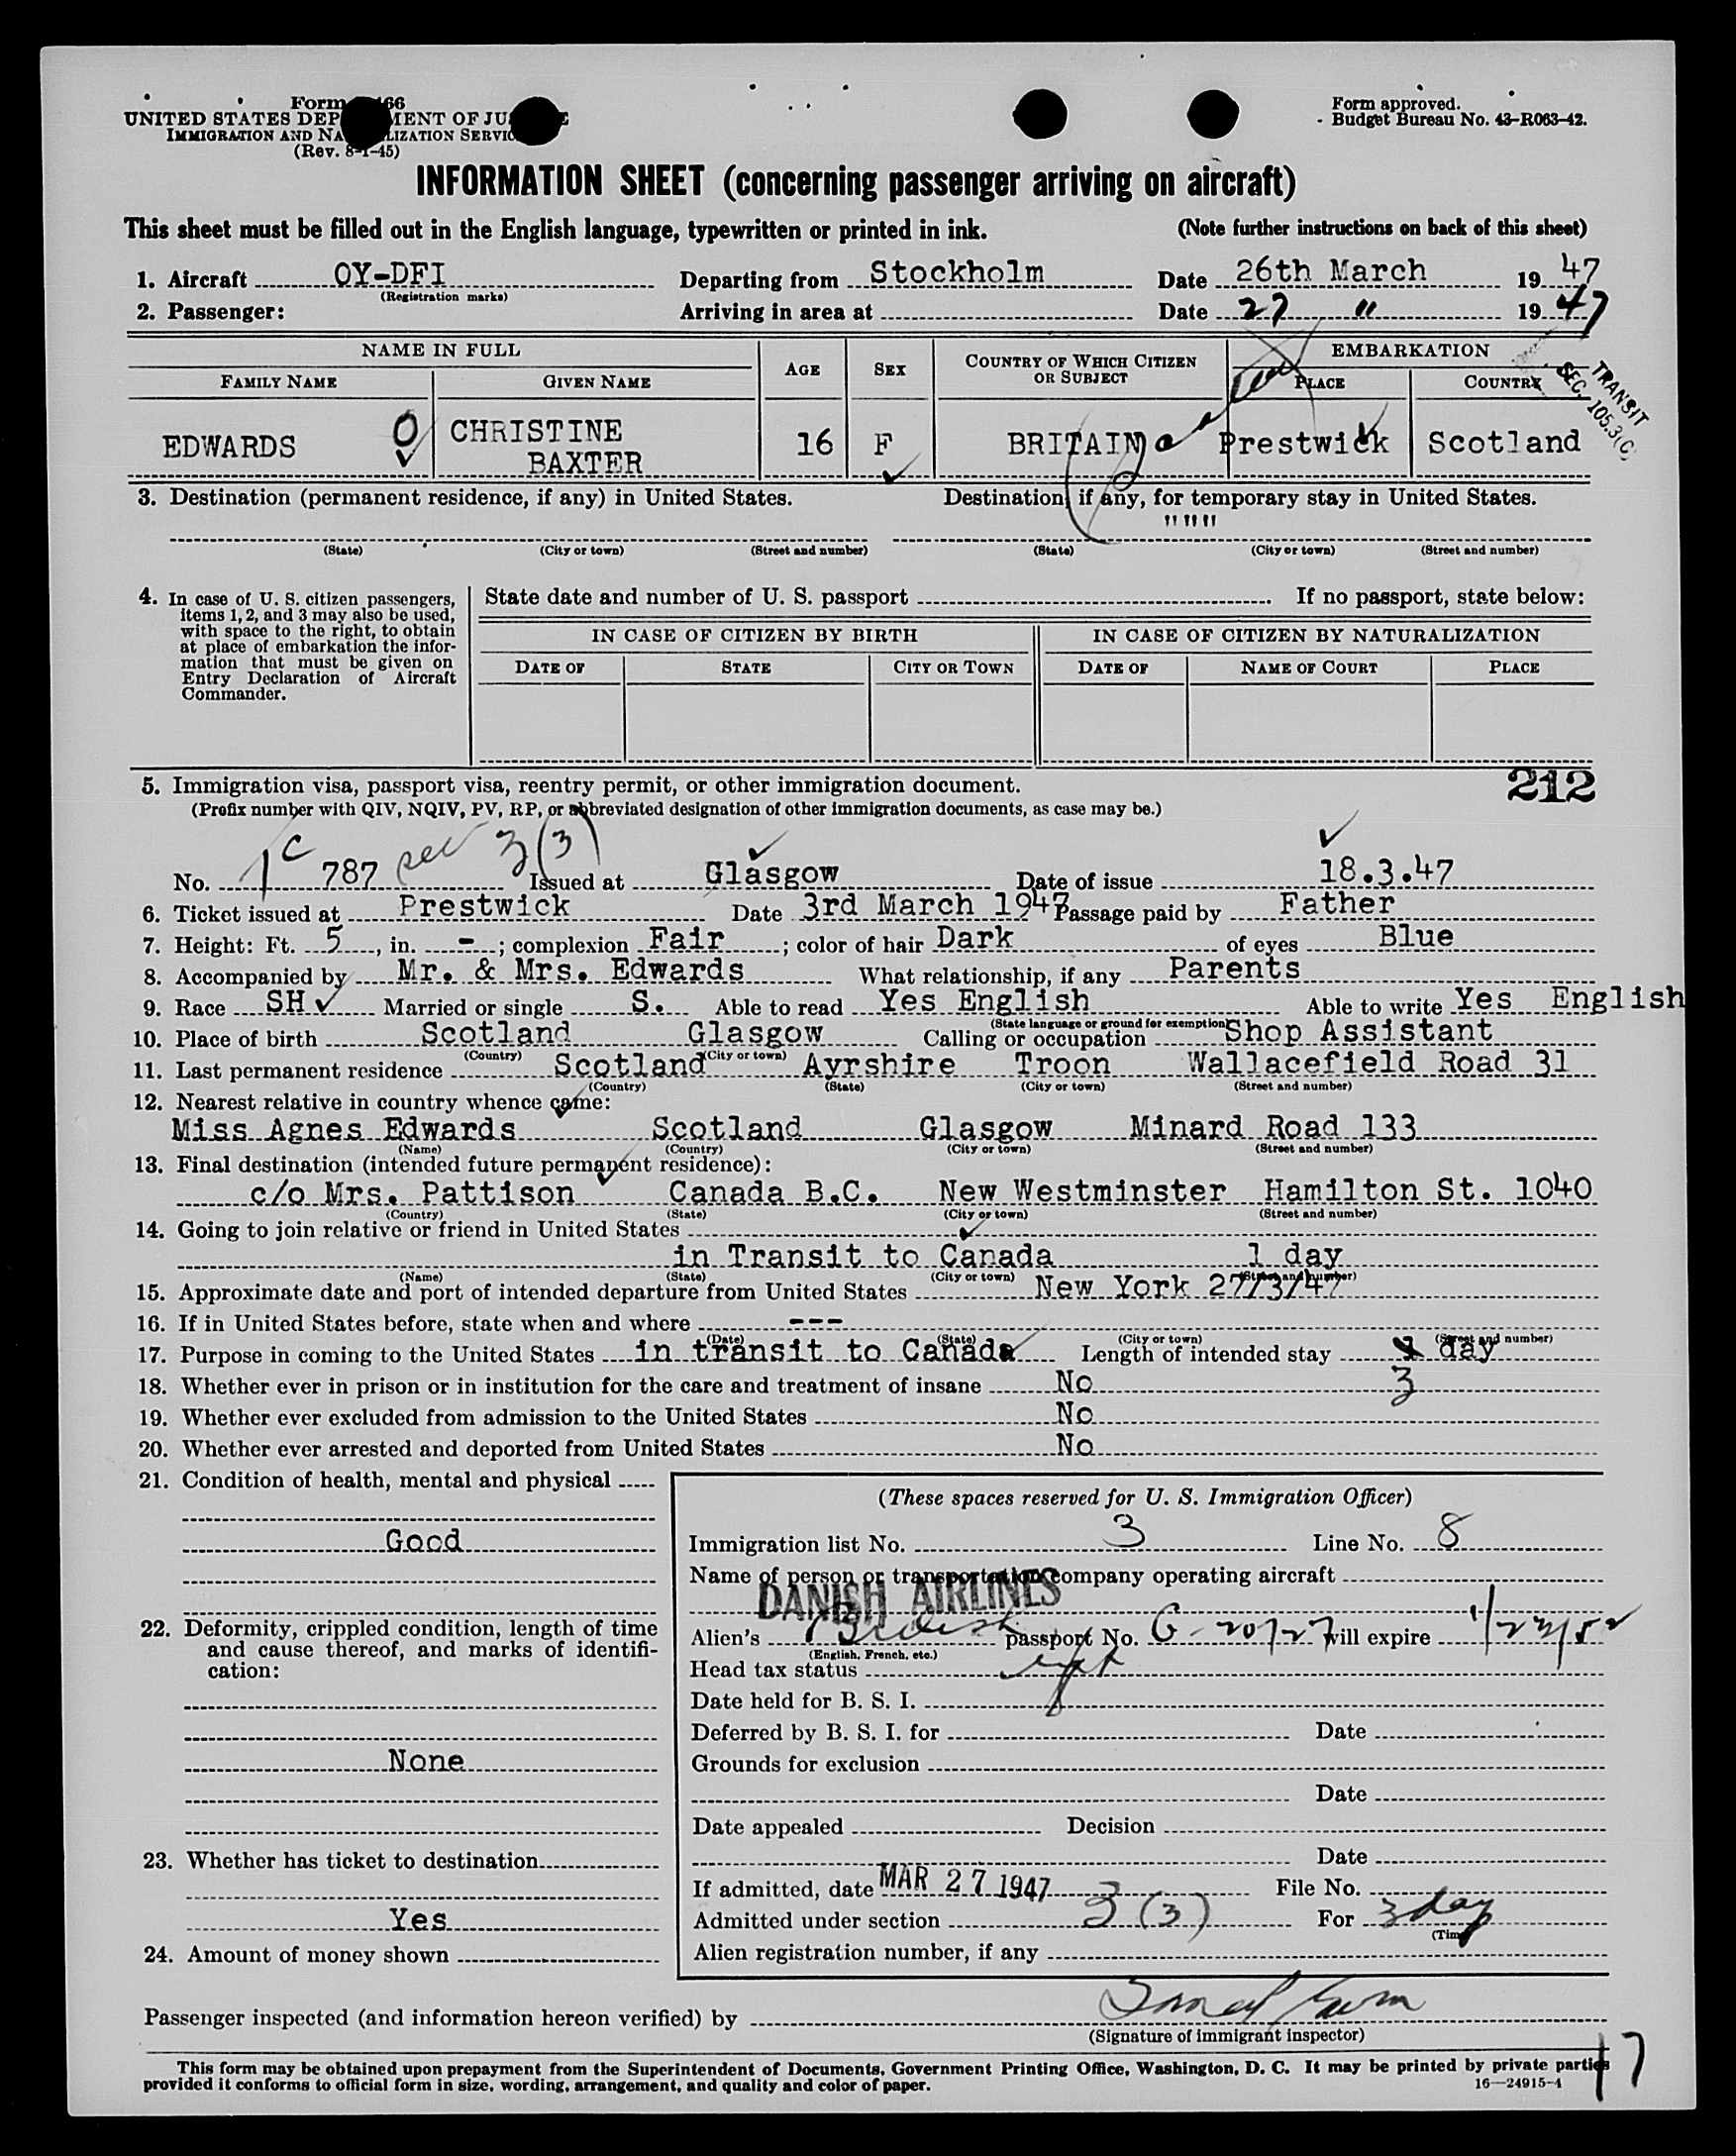 Form
66
UNITED STATES DEP MENT OF JU E
IMMIGRATION AND NA LIZATION SERVIC
(Rev. 8-1-45)
Form approved.
Budget Bureau No. 43-R063-42.
INFORMATION SHEET (concerning passenger arriving on aircraft)
This sheet must be filled out in the English language, typewritten or printed in ink. (Note further instructions on back of this sheet)
1. Aircraft OY-DFI Departing from Stockholm Date 26th March 1947
(Registration marks)
2. Passenger: Arriving in area at Date 27 " 1947
NAME IN FULL AGE SEX COUNTRY OF WHICH CITIZEN OR SUBJECT EMBARKATION
FAMILY NAME GIVEN NAME PLACE COUNTRY
TRANSIT
SEC. 105.3(C)
EDWARDS CHRISTINE BAXTER 16 F BRITAIN Prestwick Scotland
3. Destination (permanent residence, if any) in United States. Destination, if any, for temporary stay in United States.
"""""
(State) (City or town) (Street and number) (State) (City or town) (Street and number)
4. In case of U. S. citizen passengers, items 1, 2, and 3 may also be used, with space to the right, to obtain at place of embarkation the information that must be given on Entry Declaration of Aircraft Commander.
State date and number of U. S. passport If no passport, state below:
IN CASE OF CITIZEN BY BIRTH IN CASE OF CITIZEN BY NATURALIZATION
DATE OF STATE CITY OR TOWN DATE OF NAME OF COURT PLACE
212
5. Immigration visa, passport visa, reentry permit, or other immigration document.
(Prefix number with QIV, NQIV, PV, RP, or abbreviated designation of other immigration documents, as case may be.)
No. 1c 787 sec 3(3) Issued at Glasgow Date of issue 18.3.47
6. Ticket issued at Prestwick Date 3rd March 1947 Passage paid by Father
7. Height: Ft. 5, in. -; complexion Fair; color of hair Dark of eyes Blue
8. Accompanied by Mr. & Mrs. Edwards What relationship, if any Parents
9. Race SH Married or single S. Able to read Yes English Able to write Yes English
(State language or ground for exemption)
10. Place of birth Scotland Glasgow Calling or occupation Shop Assistant
(Country) (City or town)
11. Last permanent residence Scotland Ayrshire Troon Wallacefield Road 31
(Country) (State) (City or town) (Street and number)
12. Nearest relative in country whence came:
Miss Agnes Edwards Scotland Glasgow Minard Road 133
(Name) (Country) (City or town) (Street and number)
13. Final destination (intended future permanent residence):
c/o Mrs. Pattison Canada B.C. New Westminster Hamilton St. 1040
(Country) (State) (City or town) (Street and number)
14. Going to join relative or friend in United States
in Transit to Canada 1 day
(Name) (State) (City or town) (Street and number)
15. Approximate date and port of intended departure from United States New York 27/3/47
16. If in United States before, state when and where ---
(Date) (State) (City or town) (Street and number)
17. Purpose in coming to the United States in transit to Canada Length of intended stay day
3
18. Whether ever in prison or in institution for the care and treatment of insane No
19. Whether ever excluded from admission to the United States No
20. Whether ever arrested and deported from United States No
21. Condition of health, mental and physical
Good
22. Deformity, crippled condition, length of time and cause thereof, and marks of identification:
None
23. Whether has ticket to destination
Yes
24. Amount of money shown
(These spaces reserved for U. S. Immigration Officer)
Immigration list No. 3 Line No. 8
Name of person or transportation company operating aircraft
DANISH AIRLINES
Alien's British passport No. G-20727 will expire 1/23/52
(English, French, etc.)
Head tax status
Date held for B. S. I.
Deferred by B. S. I. for Date
Grounds for exclusion
Date
Date appealed Decision
Date
If admitted, date MAR 27 1947 File No.
Admitted under section 3 (3) For 3 day
(Time)
Alien registration number, if any
Passenger inspected (and information hereon verified) by
(Signature of immigrant inspector)
This form may be obtained upon prepayment from the Superintendent of Documents, Government Printing Office, Washington, D. C. It may be printed by private parties
provided it conforms to official form in size, wording, arrangement, and quality and color of paper.
16—24915-4
17